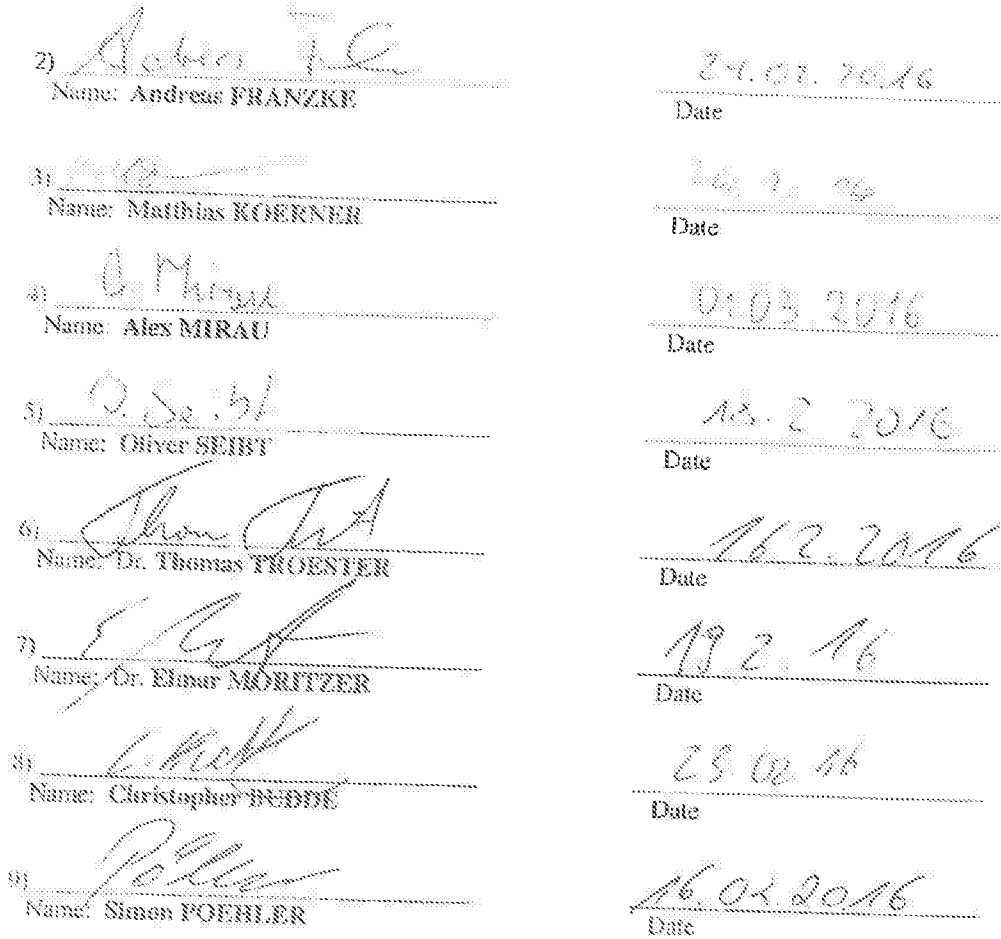 2)
Name: Andreas FRANZKE
24.02.2016
Date
3)
Name: Matthias KOERNER
Date
4) A. Mirau
Name: Alex MIRAU
01.03.2016
Date
5) O. Seibt
Name: Oliver SEIBT
18.2.2016
Date
6)
Name: Dr. Thomas TROESTER
16.2.2016
Date
7)
Name: Dr. Elmar MORITZER
19.2.16
Date
8)
Name: Christopher BUDDE
02.16
Date
9) Pöhler
Name: Simon POEHLER
16.02.2016
Date